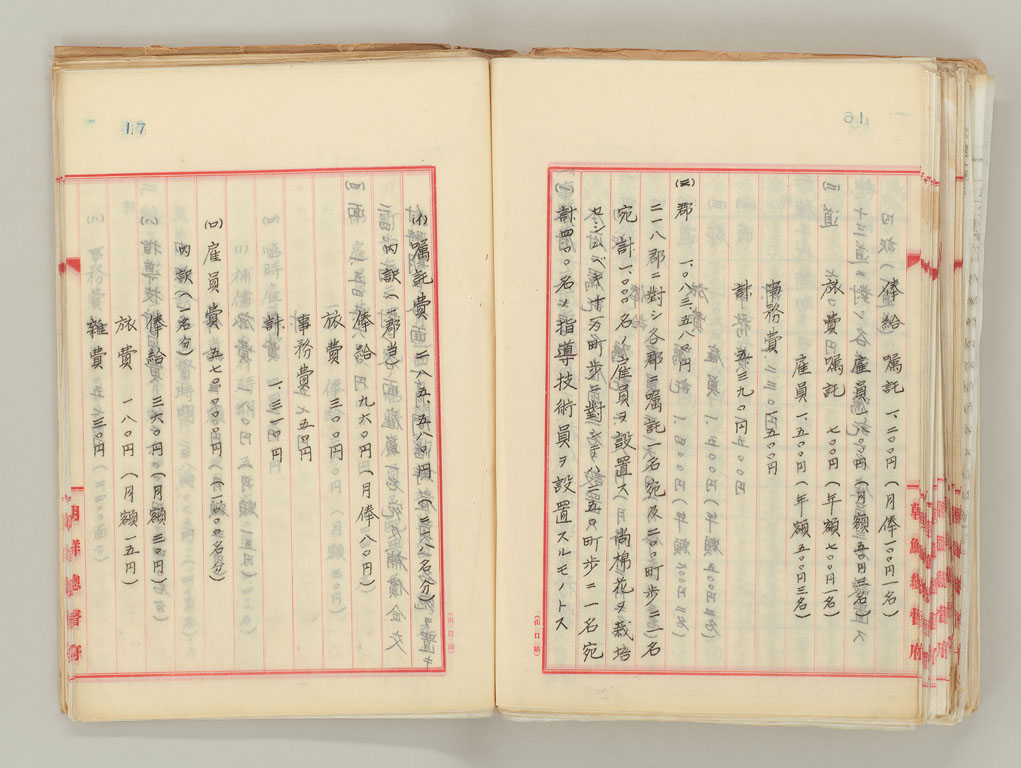 俸給 嘱託 一、二〇〇円(月俸一〇〇円一名)
雇員 一、八〇〇円(月額五〇円三名)
旅費 嘱託 七〇〇円(年額七〇〇円一名)
雇員 一、五〇〇円(年額五〇〇円三名)
事務費
計 五、三九〇円
(三)郡 一、〇八三、五八〇円
二一八郡ニ對シ各郡ニ嘱託一名宛及二〇〇町歩ニ一名
宛計一、〇〇〇名ノ雇員ヲ設置ス尚棉花ヲ栽培
セシムベキ廿万町歩ニ對シテハ五〇〇町歩ニ一名宛
計四〇〇名ノ指導技術員ヲ設置スルモノトス
朝鮮總督府
17
(イ)嘱託費 二八五、五八〇円(二一八名分)
内訳(一郡当)
俸給 九六〇円(月俸八〇円)
旅費 三〇〇円
事務費 五〇円
計 一、三一〇円
(ロ)雇員費 五七〇、〇〇〇円(一、〇〇〇名分)
内訳(一名分)
俸給 三六〇円(月額三〇円)
旅費 一八〇円(月額一五円)
雑費 三〇円
朝鮮總督府